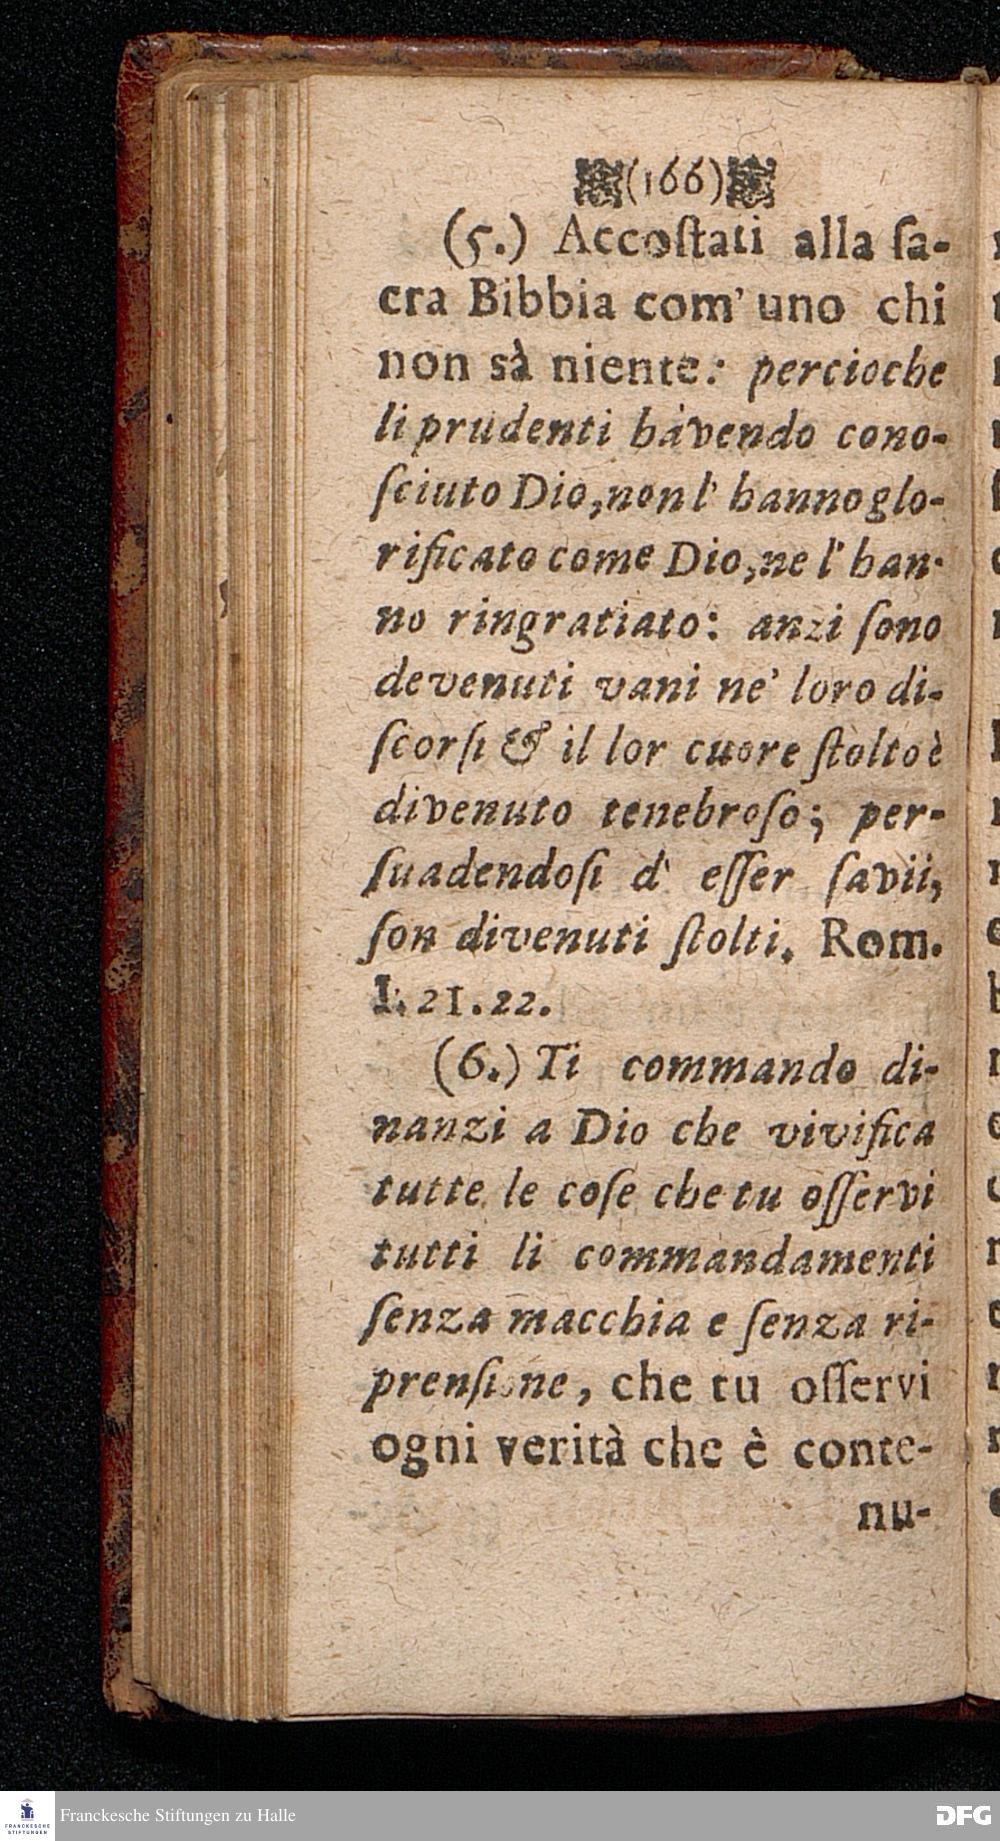 (166)
(5.) Accoſtati alla ſa-
cra Bibbia com' uno chi
non sà niente: percioche
li prudenti hàvendo cono-
ſciuto Dio, non l' hanno glo-
rificato come Dio, ne l' han-
no ringratiato: anzi ſono
devenuti vani ne' loro di-
ſcorſi & il lor cuore ſtolto è
divenuto tenebroſo; per-
ſuadendoſi d' eſſer ſavii,
ſon divenuti ſtolti. Rom.
I. 21. 22.
(6.) Ti commando di-
nanzi a Dio che vivifica
tutte le coſe che tu oſſervi
tutti li commandamenti
ſenza macchia e ſenza ri-
prenſione, che tu oſſervi
ogni verità che è conte-
nu-
FRANCKESCHE
STIFTUNGEN
Franckesche Stiftungen zu Halle
DFG